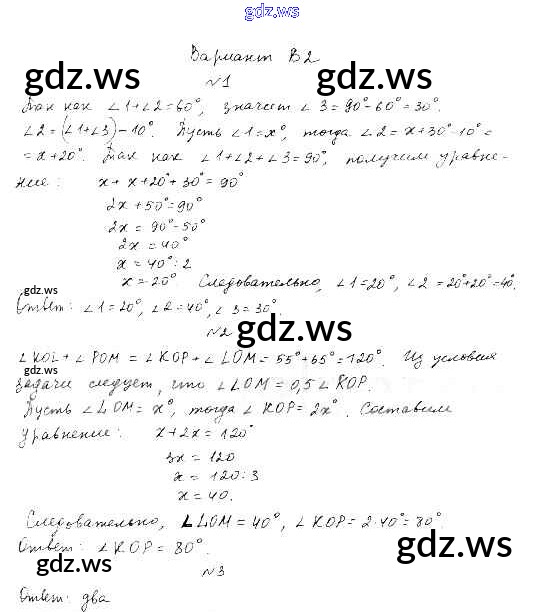 gdz.ws
Вариант В2
gdz.ws gdz.ws
№1
Так как ∠1+∠2=60°, значит ∠3=90°-60°=30°.
∠2=(∠1+∠3)-10°. Пусть ∠1=x°, тогда ∠2=x+30°-10°=
=x+20°. Так как ∠1+∠2+∠3=90°, получим уравне-
ние: x+x+20°+30°=90°
2x+50°=90°
2x=90°-50°
2x=40°
x=40°:2
x=20°. Следовательно, ∠1=20°, ∠2=20°+20°=40°.
gdz.ws
Ответ: ∠1=20°, ∠2=40°, ∠3=30°.
№2 gdz.ws
∠KOL+∠POM=∠KOP+∠LOM=55°+65°=120°. Из условия
gdz.ws
задачи следует, что ∠LOM=0,5∠KOP.
Пусть ∠LOM=x°, тогда ∠KOP=2x°. Составим
уравнение: x+2x=120°
3x=120
x=120:3
x=40.
Следовательно, ∠LOM=40°, ∠KOP=2·40°=80°.
Ответ: ∠KOP=80°.
gdz.ws gdz.ws
№3
Ответ: два
gdz.ws